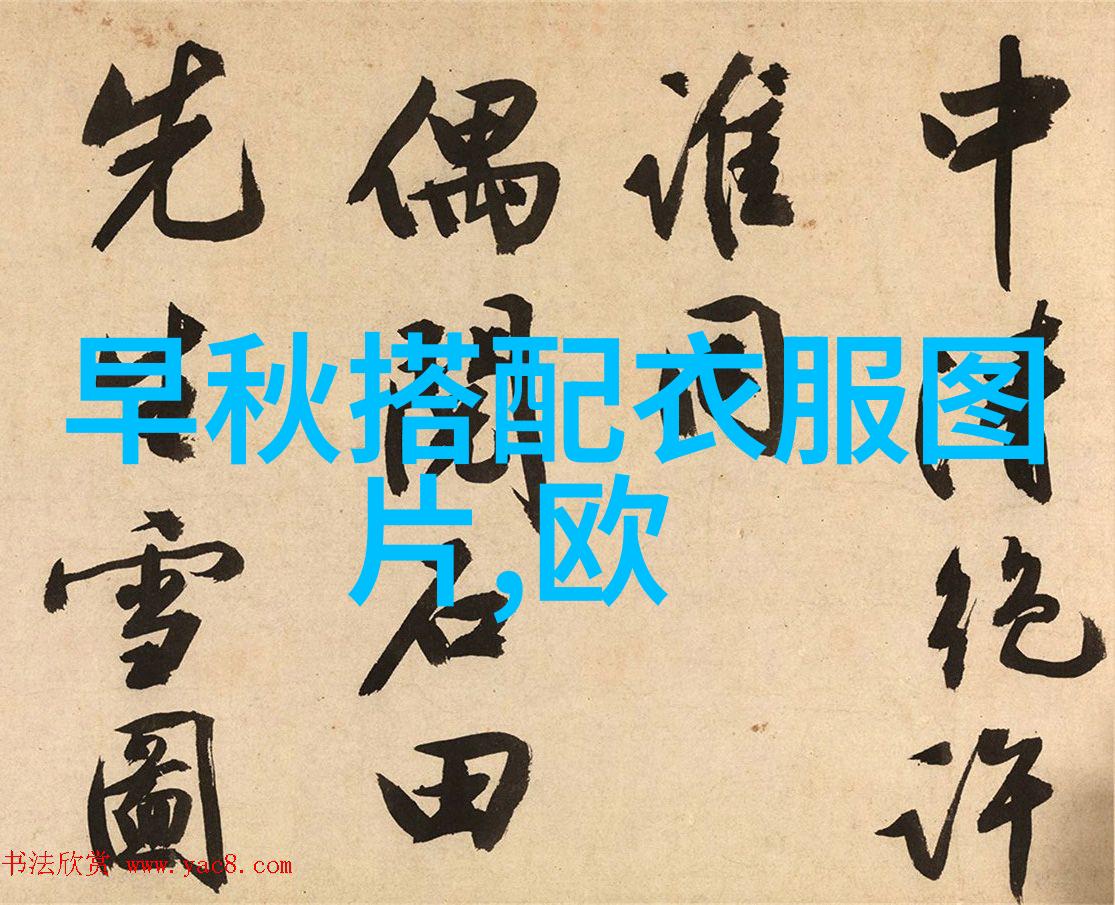 早秋搭配衣服图
片,欧
中清絶許
誰同
偶閱石田
先生雪圖
书法欣赏 www.yac8.com